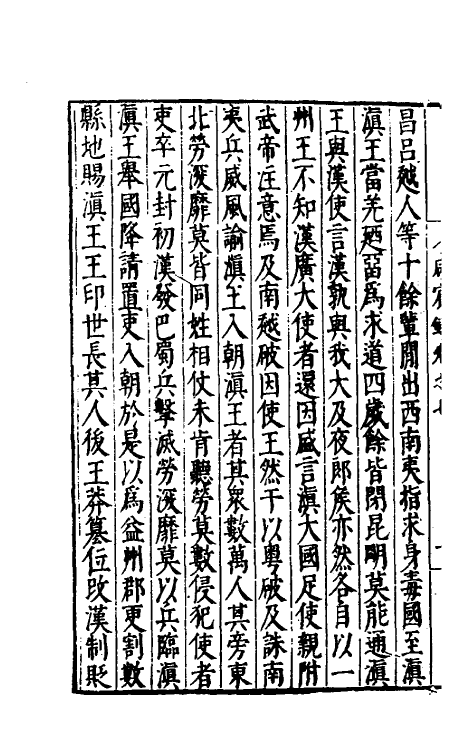 昌呂越人等十餘輩閒出西南夷指求身毒國至滇
滇王當羌廼留爲求道四歲餘皆閉昆明莫能通滇
王與漢使言漢孰與我大及夜郎侯亦然各自以一
州王不知漢廣大使者還因盛言滇大國足使親附
武帝注意焉及南越破因使王然于以粵破及誅南
夷兵威風諭滇王入朝滇王者其衆數萬人其旁東
北勞浸靡莫皆同姓相仗未肯聽勞莫數侵犯使者
吏卒元封初漢發巴蜀兵擊滅勞浸靡莫以兵臨滇
滇王舉國降請置吏入朝於是以爲益州郡更割數
縣地賜滇王王印世長其人後王莽篡位改漢制貶